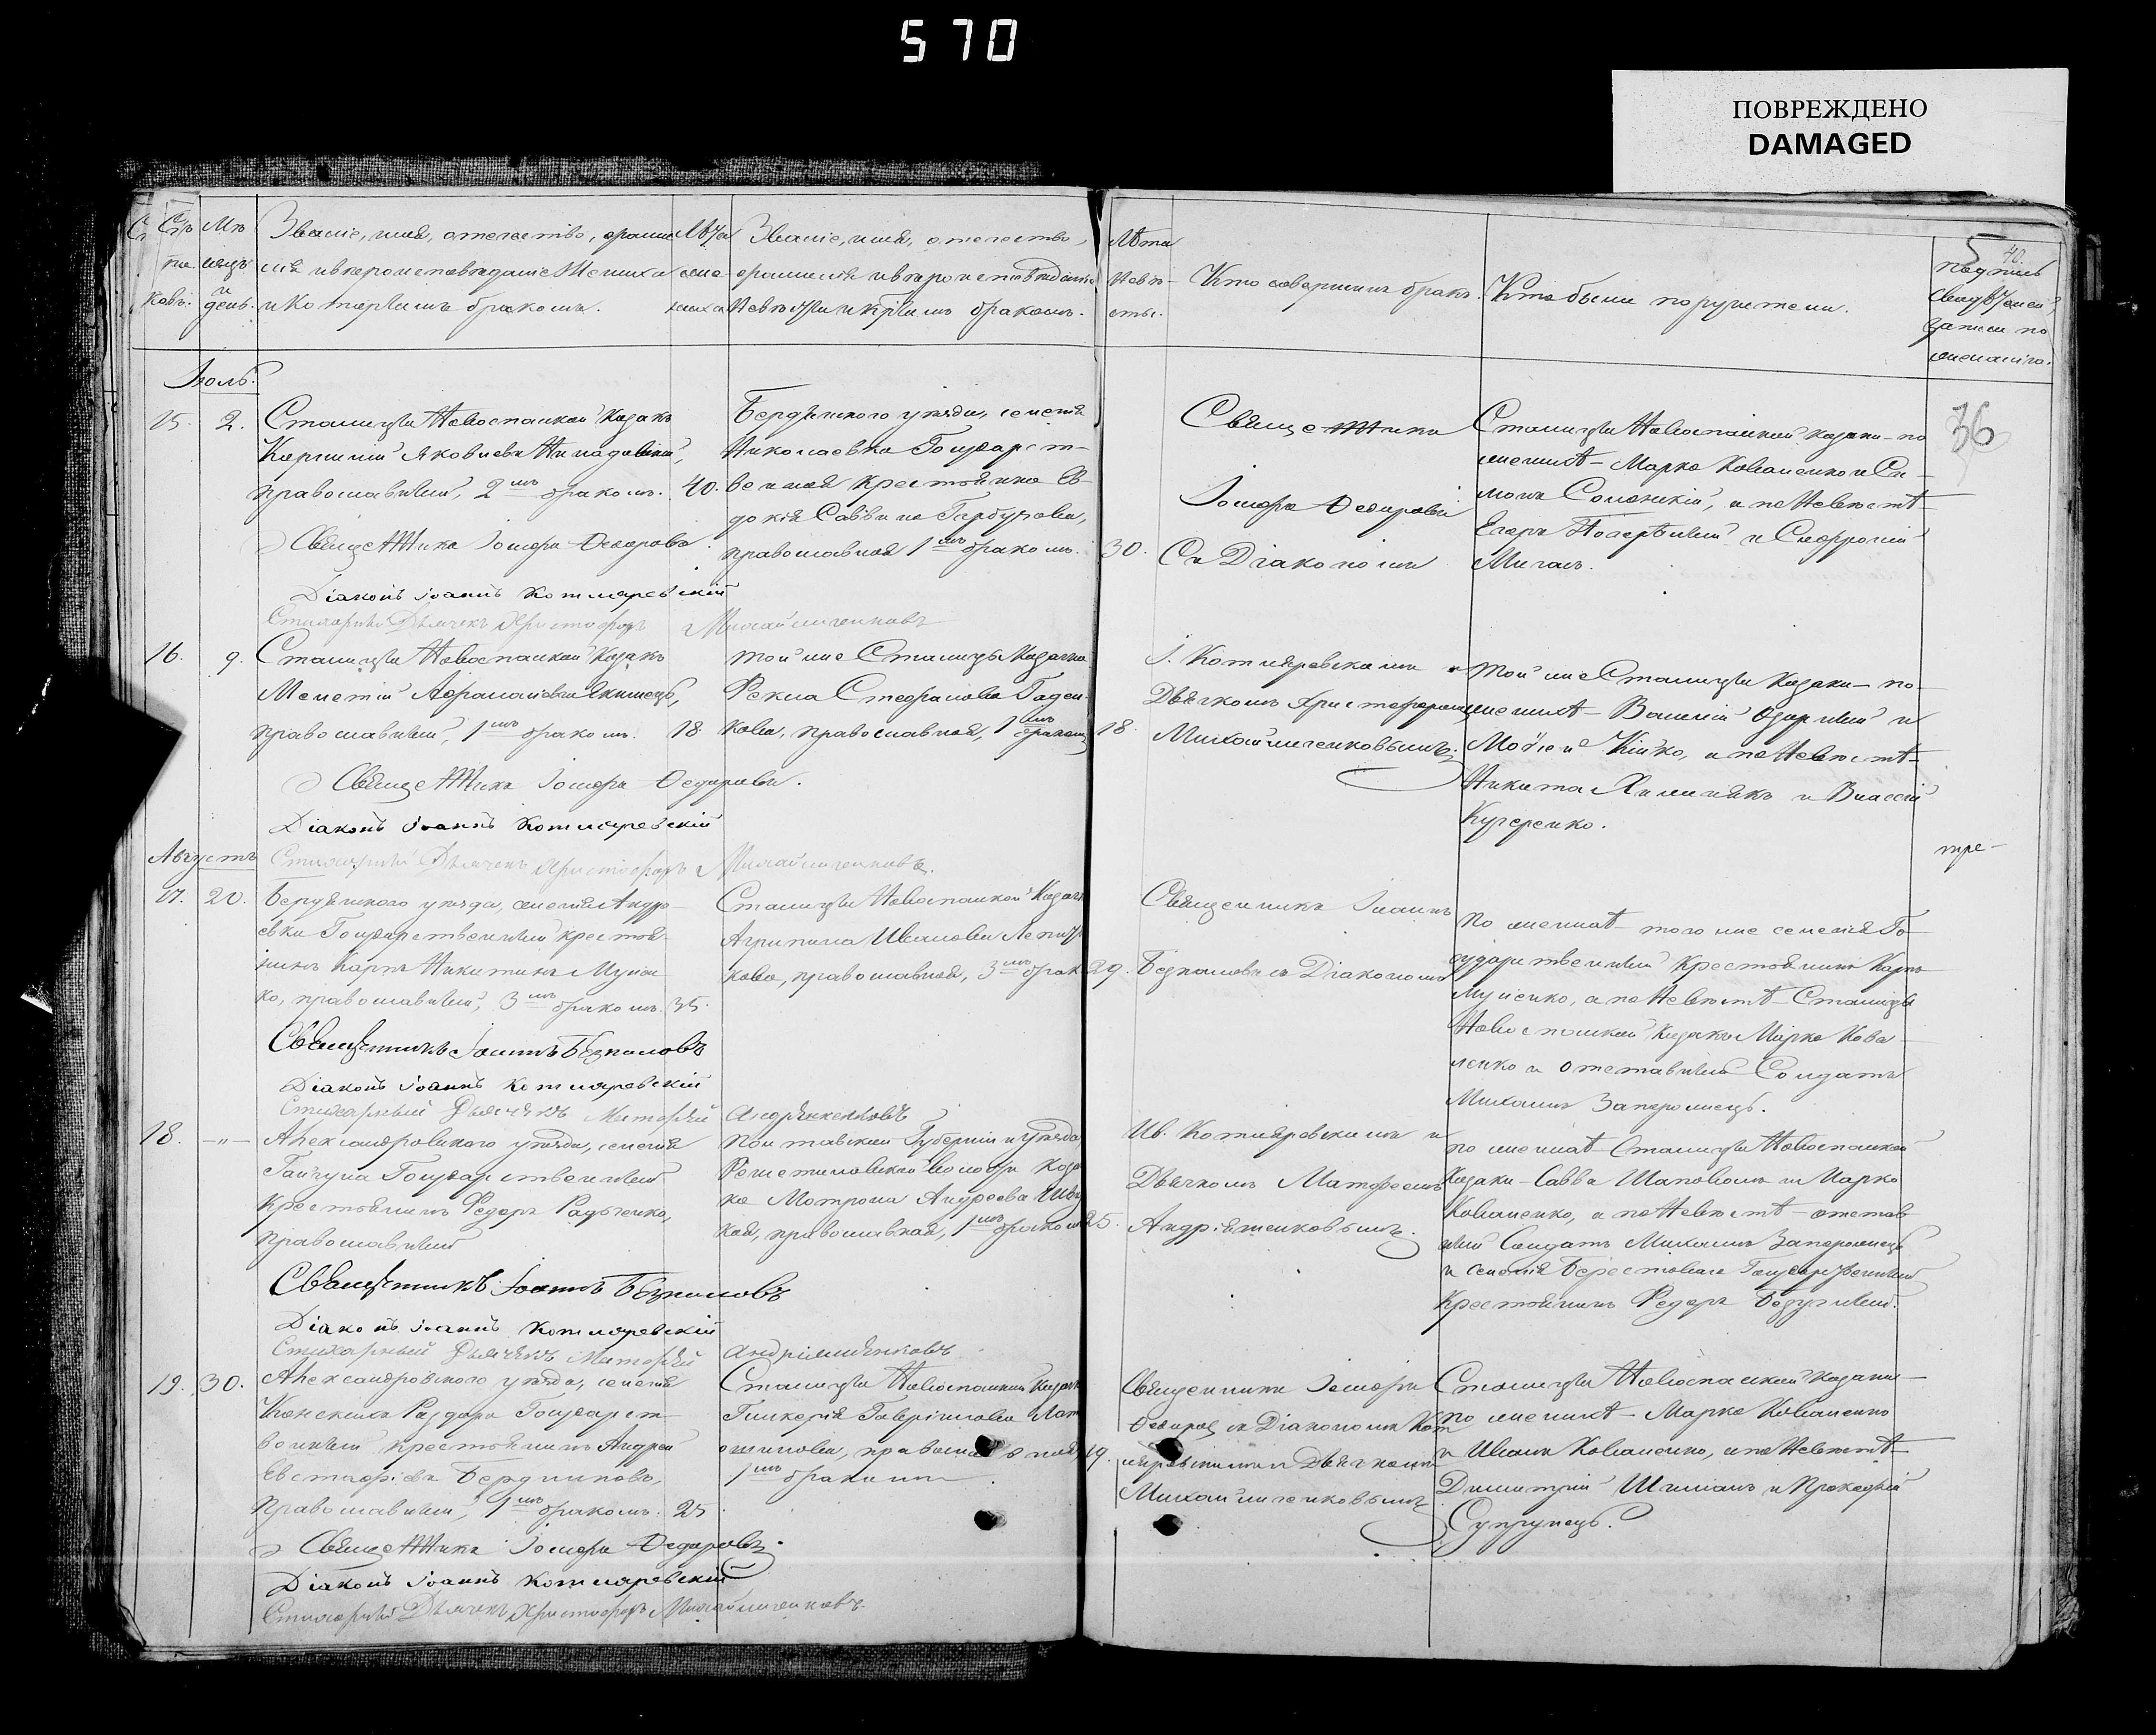 570
ПОВРЕЖДЕНО
DAMAGED
Мѣ
сяцъ
и
день.
Званіе, имя, отечество, фрами
лія и вѣроисповѣданіе Жениха
и которымъ бракомъ.
Лѣта
жениха
Званіе, имя, отечество,
фрамилія и вѣроисповѣданіе
Невѣсты и кріимъ бракомъ.
Лѣта
Невѣ-
сты.
Кто совершилъ бракъ.
Кто были поручители.
40.
подпись
свидѣтелей
записи по
желанію.
Іюль.
15. 2.
Станицы Новоспаской Козакъ
Яковлевъ
православный, 2мъ бракомъ. 40.
Священника Іосифъ Федоровъ
Діаконъ Іоаннъ Котляревскій
Стихарный Дьячекъ Христофоръ Михайличенковъ
Бердянского уѣзда, селенія
Николаевка Государст-
венная крестьянка Ев-
докія Саввина Гарбузова,
православная 1мъ бракомъ. 30.
Священника
Іосифъ Федоровъ
Съ Діакономъ
Станицы Новоспаской козаки - по
женихѣ - Марко Коваленко и Си-
монъ, а по Невѣстѣ
Егоръ и Софроній
36
16. 9.
Станицы Новоспаской Козакъ
Мелетій Афранасіевъ Якимецъ,
православный, 1мъ бракомъ. 18.
Священника Іосифъ Федоровъ.
Діаконъ Іоаннъ Котляревскій
Стихарный Дьячекъ Христофоръ Михайличенковъ.
той же Станицы Козачка
Фекла Стефранова Гаден-
кова, православная, 1мъ бракомъ 18.
І. Котляревскимъ и
Дьячкомъ Христофоромъ
Михайличенковымъ.
той же Станицы Козаки - по
женихѣ - Василій и
Кійко, а по Невѣстѣ
Никита и Власій
Кучеренко.
тре-
Августъ
17. 20.
Бердянского уѣзда, селенія Андре-
евки Государственный крестья-
нинъ Карпъ Никитинъ
ко, православный, 3мъ бракомъ. 35.
Священникъ Іоаннъ Безпаловъ
Діаконъ Іоаннъ Котляревскій
Стихарный Дьячекъ Матфей Андріященковъ
Станицы Новоспаской Козачка
Агрипина Иванова
кова, православная, 3мъ брак 29.
Священникъ Іоаннъ
Безпаловъ съ Діакономъ
По женихѣ - того же селенія Го-
сударственный Крестьянинъ Карпъ
а по Невѣстѣ - Станицы
Новоспаской Козакъ Марко Кова-
ленко и отставный Солдатъ
Михаилъ Запорожецъ.
18. -"-
Александровского уѣзда, селенія
Гайчула Государственный
Крестьянинъ Федоръ Радченко,
православный
Священникъ Іоаннъ Безпаловъ
Діаконъ Іоаннъ Котляревскій
Стихарный Дьячекъ Матфей Андріященковъ
Полтавской Губерніи и уѣзда
Решетиловской волости Коза
ка Мотрона Андреева
кая, православная, 1мъ бракомъ 25.
Ив. Котляревскимъ и
Дьячкомъ Матфеемъ
Андріященковымъ.
по женихѣ Станицы Новоспаской
Козаки - Савва Шаповалъ и Марко
Коваленко, а по Невѣстѣ - отстав
ный Солдатъ Михаилъ Запорожецъ
и селенія Берестоваго Государственный
Крестьянинъ Федоръ
19. 30.
Александровского уѣзда, селенія
Конскихъ Раздоръ Государст-
венный крестьянинъ Андрей
Евстафріевъ Бердниковъ,
православный, 1мъ бракомъ. 25.
Священника Іосифъ Федоровъ.
Діаконъ Іоаннъ Котляревскій
Стихарный Дьячекъ Христофоръ Михайличенковъ.
Станицы Новоспаской Козачка
Гликерія Гаврійлова
православная, 19.
1мъ бракомъ.
Священникъ Іосифъ
Федоров съ Діакономъ Кот
ляревскимъ и Дьячкомъ
Михайличенковымъ
Станицы Новоспаской Козаки -
по женихѣ - Марко Коваленко
и Иванъ Коваленко, а по Невѣстѣ
Димитрій и Прокофрій
Супрунецъ.